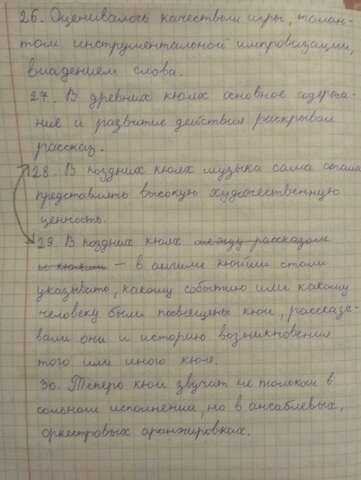 26. Оценивалось качеством игры, талан-
том инструментальной импровизации,
владением слова.
27. В древних кюях основное содержа-
ние и развитие действия раскрывал
рассказ.
28. В поздних кюях музыка сама стала
представлять высокую художественную
ценность.
29. В поздних кюях между рассказом
и кюями – в анишме кюйши стали
указывать, какому событию или какому
человеку были посвящены кюи, рассказы-
вали они и историю возникновения
того или иного кюя.
30. Теперь кюи звучат не только в
сольном исполнении, но в ансаблевых,
оркестровых аранжировках.